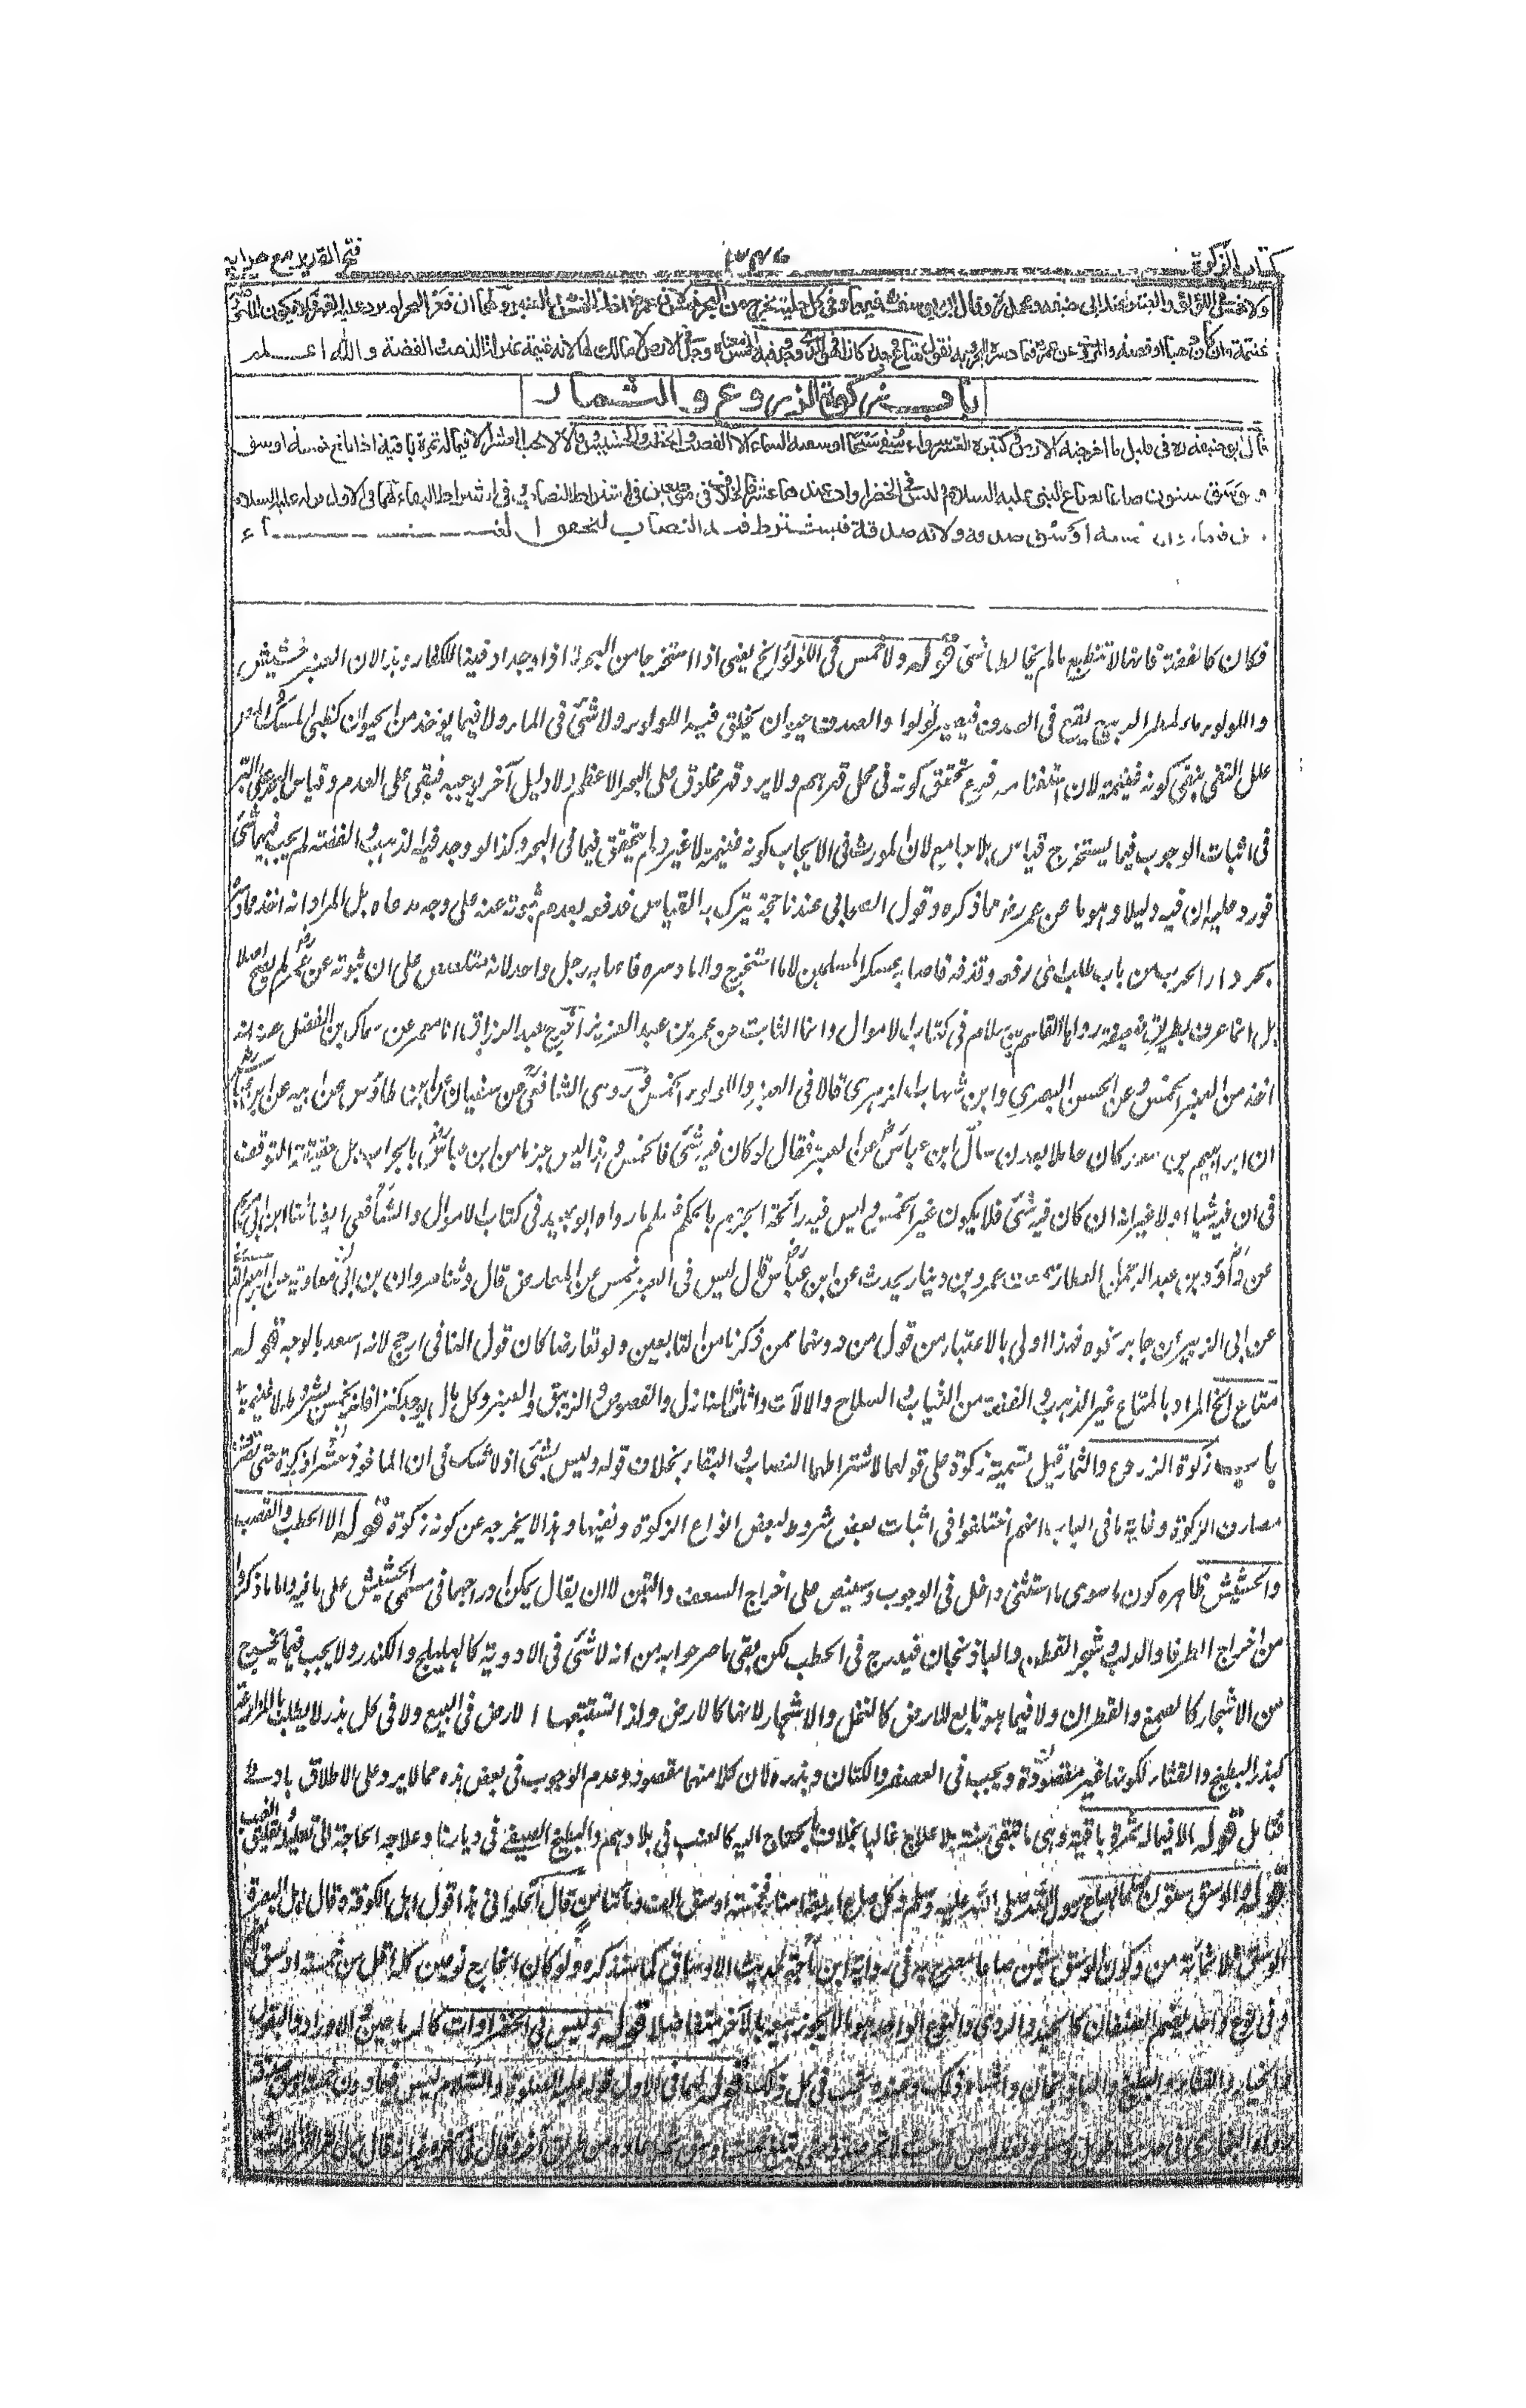 كتاب الزكوة
فتح القدير مع هدايه
ولا خمس فى اللؤلؤ والعنبر عند ابى حنيفه ومحمد وقال ابو يوسف فيهما وفى كل حلية تخرج من البحر خمس لان عمر اخذ الخمس من العنبر ولهما ان قعر البحر لم يرد عليه القهر فلا يكون الماخوذ منه
غنيمة وان كان ذهبا او فضة والمروى عن عمر فيما دسره البحر وبه نقول متاع وجد ركازا فهو للذى وجده وفيه الخمس معناه وجد فى الارض لا مالك لها لانه غنيمة بمنزلة الذهب والفضة والله اعلم
باب زكوة الزروع والثمار
قال ابو حنيفة ره فى قليل ما اخرجته الارض وكثيره العشر سواء سقى سيحا او سقته السماء الا القصب والحطب والحشيش وقالا لا يجب العشر الا فيما له ثمرة باقية اذا بلغ خمسة اوسق
و وسق ستون صاعا بصاع النبى عليه السلام وليس فى الخضراوات عندهما عشر فالخلاف فى موضعين فى اشتراط النصاب وفى اشتراط البقاء لهما فى الاول قوله عليه السلام
خمسة اوسق صدقة ولانه صدقة فيشترط فيه النصاب لتحقق الغناء
فكان كالفضة فانها لا تنطبع ما لم يخالطها شئ قوله ولا خمس فى اللؤلؤ الخ يعنى اذا استخرجا من البحر لا اذا وجدا دفينا للكفار وهذا لان العنبر حشيش
واللولو مطر الربيع يقع فى الصدف فيصير لؤلوا والصدف حيوان يخلق فيه اللولو ولا شئ فى الماء ولا فيما يوخذ من الحيوان كظبى المسك
علل النفى بنفى كونه غنيمة لان استغنامه فرع تحقق كونه فى محل قهرهم ولا يرد قهر مخلوق على البحر الاعظم ولا دليل آخر يوجبه فبقى على العدم وقياس البحر على البر
فى اثبات الوجوب فيما يستخرج قياس بلا جامع لان المؤثر فى الايجاب كونه غنيمة لا غير ولم يتحقق فيما فى البحر وكذا لو وجد فيه الذهب والفضة لم يجب فيهما شئ
فورد عليه ان فيه دليلا وهو ما عن عمر رض مما ذكره وقول الصحابى عندنا حجة يترك به القياس فدفعه بعدم ثبوته عنه على وجه مدعاه بل المراد انه اخذ مما دسره
بحر دار الحرب من باب طلب اى دفعه وقذفه فاصابه عسكر المسلمين لا ما استخرج ولا ما دسره فاصابه رجل واحد لانه متلصص على ان ثبوته عن عمر لم يصح اصلا
بل انما عرف بطريق ضعيفة رواها القاسم بن سلام فى كتاب الاموال وانما الثابت عن عمر بن عبد العزيز اخرج عبد الرزاق انا معمر عن سماك بن الفضل عنه انه
اخذ من العنبر الخمس وعن الحسن البصرى وابن شهاب الزهرى قالا فى العنبر واللولو الخمس وروى الشافعى عن سفيان عن ابن طاؤس عن ابيه عن ابن عباس
ان ابراهيم بن سعد كان عاملا بعدن سأل ابن عباس عن العنبر فقال لو كان فيه شئ فالخمس وهذا ليس جزما من ابن عباس بالجواب بل حقيقة التوقف
فى ان فيه شيا اولا غير انه ان كان فيه شئ فلا يكون غير الخمس وليس فيه رائحة الجزم بالحكم فسلم ما رواه ابو عبيد فى كتاب الاموال والشافعى ايضا ثنا ابن ابى مريم
عن داؤد بن عبد الرحمن العطار سمعت عمرو بن دينار يحدث عن ابن عباس قال ليس فى العنبر خمس عن المعارض قال وثنا مروان بن معاوية عن ابراهيم
عن ابى الزبير عن جابر نحوه فهذا اولى بالاعتبار من قول من دونهما ممن ذكرنا من التابعين ولو تعارضا كان قول النافى ارجح لانه اسعد بالوجه قوله
متاع الخ المراد بالمتاع غير الذهب والفضة من الثياب والسلاح والآلات واثاث المنازل والفصوص والزيبق والعنبر وكل مال يوجد كنزا فانه يخمس بشرطه لانه غنيمة
باب زكوة الزروع والثمار قيل تسمية زكوة على قولهما لاشتراطهما النصاب والبقاء بخلاف قوله وليس بشئ اذ لا شك فى ان الماخوذ عشرا زكوة حتى يصرف
مصارف الزكوة وغاية ما فى الباب انهم اختلفوا فى اثبات بعض شروط لبعض انواع الزكوة ونفيها وهذا لا يخرجه عن كونه زكوة قوله الا الحطب والقصب
والحشيش ظاهره كون ما سوى ما استثنى داخل فى الوجوب وسينص على اخراج السعف والتبن لا ان يقال يمكن ادراجهما فى مسمى الحشيش على ما فيه واما ما ذكروا
من اخراج الطرفا والدلب وشجر القطن والباذنجان فيدرج فى الحطب لكن بقى ما صرحوا به من انه لا شئ فى الادوية كالهليلج والكندر ولا يجب فيما يخرج
من الاشجار كالصمغ والقطران ولا فيما هو تابع للارض كالنخل والاشجار لانها كالارض ولذا تستتبعها الارض فى البيع ولا فى كل بذر لا يطلب بالزراعة
كبذر البطيخ والقثاء لكونها غير مقصودة ويجب فى العصفر والكتان وبذره لان كلا منهما مقصود وعدم الوجوب فى بعض هذه مما لا يرد على الاطلاق بادنى
تامل قوله الا فيما له ثمرة باقية وهى ما تبقى سنة بلا علاج غالبا بخلاف ما يحتاج اليه كالعنب فى بلادهم والبطيخ الصيفى فى ديارنا وعلاجه الحاجة الى تقليبه وتعليق العنب
قوله والوسق ستون صاعا بصاع رسول الله صلى الله عليه وسلم كل صاع اربعة امناء فخمسة اوسق الف ومأتا من قال الحلوانى هذا قول اهل الكوفة وقال اهل البصرة
الوسق ثلثمائة من وكون الوسق ستين صاعا مصرح به فى رواية ابن ماجة لحديث الاوساق كما سنذكره ولو كان الخارج نوعين كل اقل من خمسة اوسق
وفى نوع واحد يضم الصنفان كالجيد والردى والنوع الواحد هو ما لا يجوز بيعه بالآخر متفاضلا قوله وليس فى الخضراوات كالرياحين والاوراد والبقول
والخيار والقثاء والبطيخ والباذنجان واشباه ذلك وعنده تجب فى كل ذلك قوله لهما فى الاول قوله عليه الصلوة والسلام ليس فيما دون خمسة اوسق صدقة